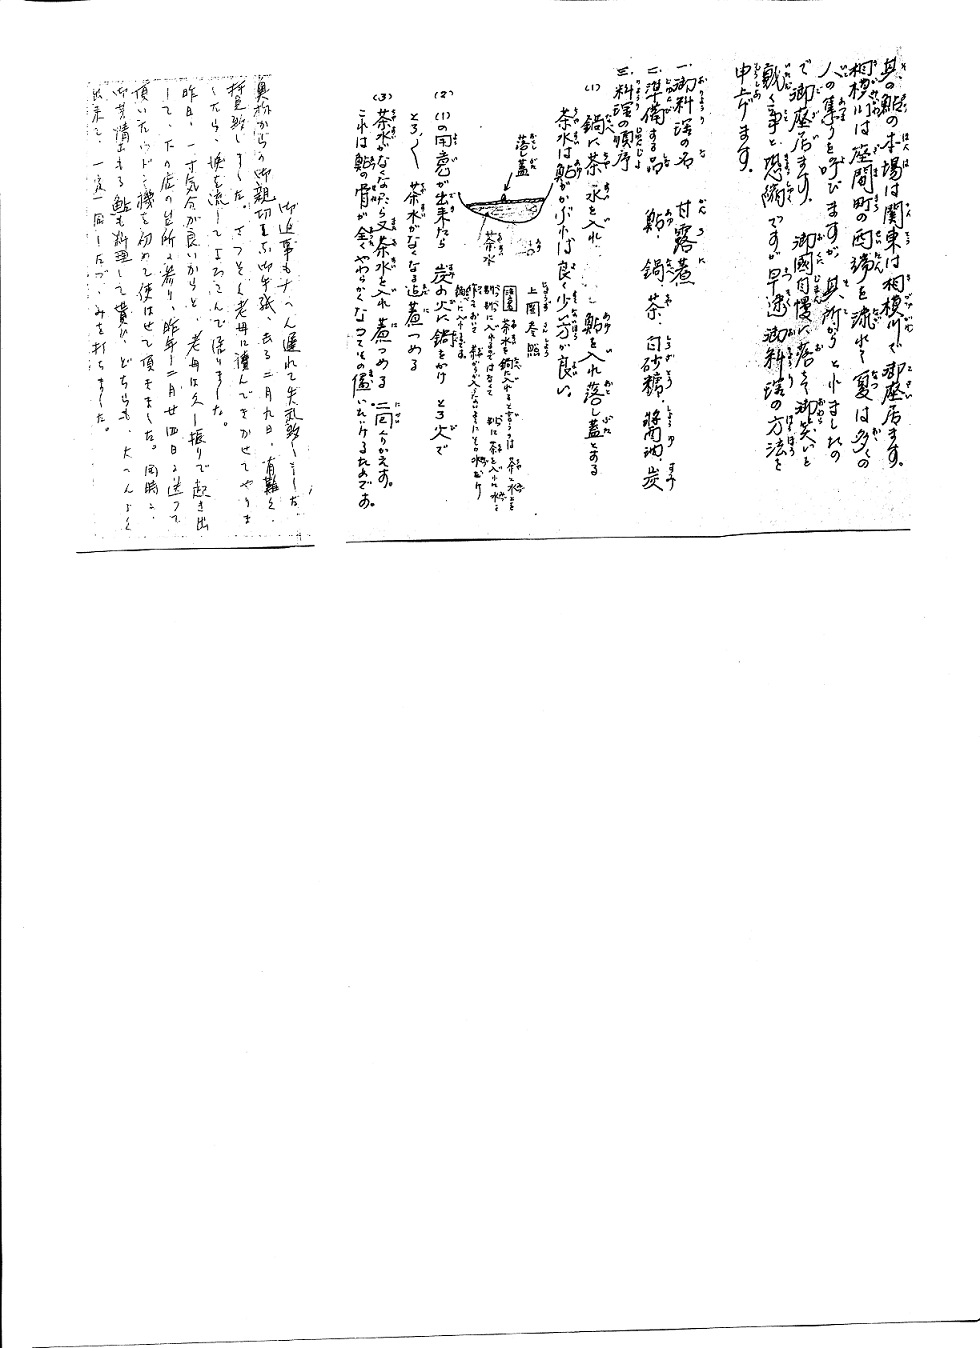 其の鮎の本場は関東は相模川で御座居ます。
相模川は座間町の西端を流れて夏は多くの
人の集りを呼びますが、其所がちょとしましたの
で御座居ます。御國自慢に落そ御笑いを
戴く事と恐縮ですが早速御料理の方法を
申上げます。
一.御料理の名 甘露煮
二.準備する品 鮎.鍋.茶.白砂糖.醤油.炭
三.料理の順序
(1) 鍋に茶水を入れ 鮎を入れ落し蓋とする
茶水は鮎がかぶれば良く少い方が良い。
落し蓋
茶水
上図参照
注意 茶水を鍋に入れると言うのは 茶と水とを
別別に入れるではなくて 別に茶を入れた水を
作っておいて
鍋に入れます。
(2) (1)の用意が出来たら 炭の火に鍋をかけ とろ火で
とろ〱 茶水がなくなる迄煮つめる
(3) 茶水がなくなったら又茶水を入れ煮つめる 二回くりかえす。
これは鮎の骨が全くやわらかくなってその儘いたゞけるためです。
御返事もナヘん遅れて失礼致しました。
奥様からの御親切なお手紙、去る二月九日、有難く、
拝見致しました。さっそく老母に讀んできかせてやりま
したら、涙を流してよろこんで居りました。
昨日、一寸気分が良いからと、老母は久し振りで起き出
して、たの店の台所に参り、昨年二月廿四日に送って
頂いたウドン機を初めて使はせて頂きました。同時に、
御恵送になる鮎も料理して貰ひ、どちらも、大へんよく
出来て、一家一同したづゝみを打ちました。